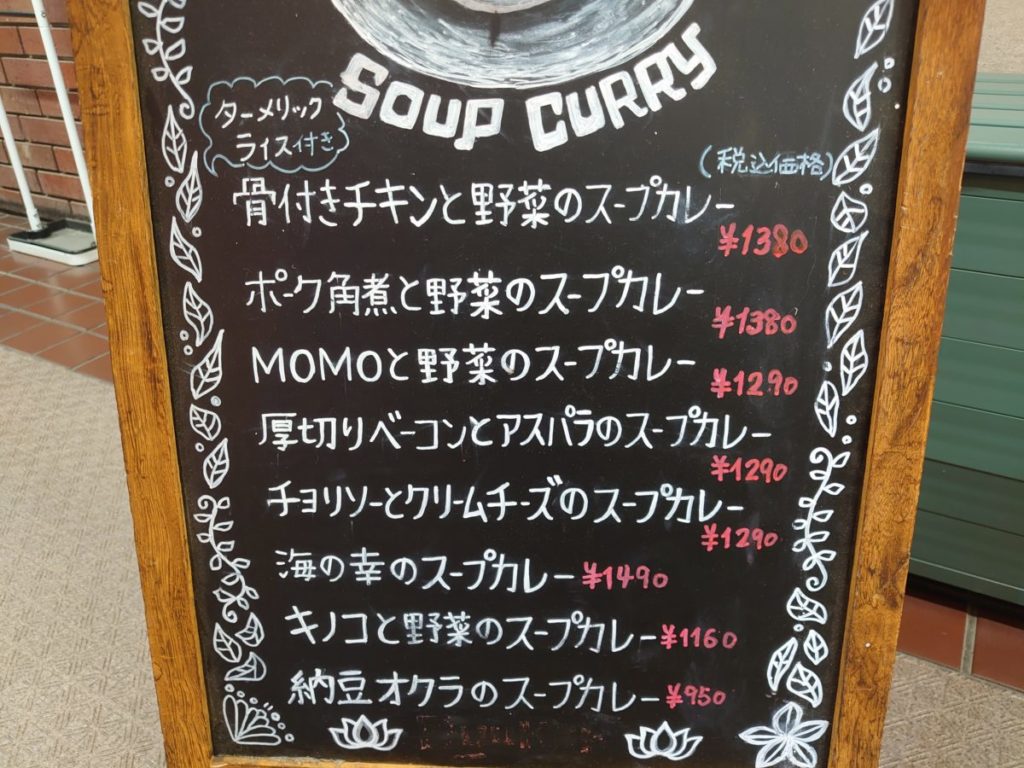 SOUP CURRY
ターメリック
ライス付き
(税込価格)
骨付きチキンと野菜のスープカレー
¥1380
ポーク角煮と野菜のスープカレー
¥1380
MOMOと野菜のスープカレー
¥1290
厚切りベーコンとアスパラのスープカレー
¥1290
チョリソーとクリームチーズのスープカレー
¥1290
海の幸のスープカレー ¥1490
キノコと野菜のスープカレー ¥1160
納豆オクラのスープカレー ¥950